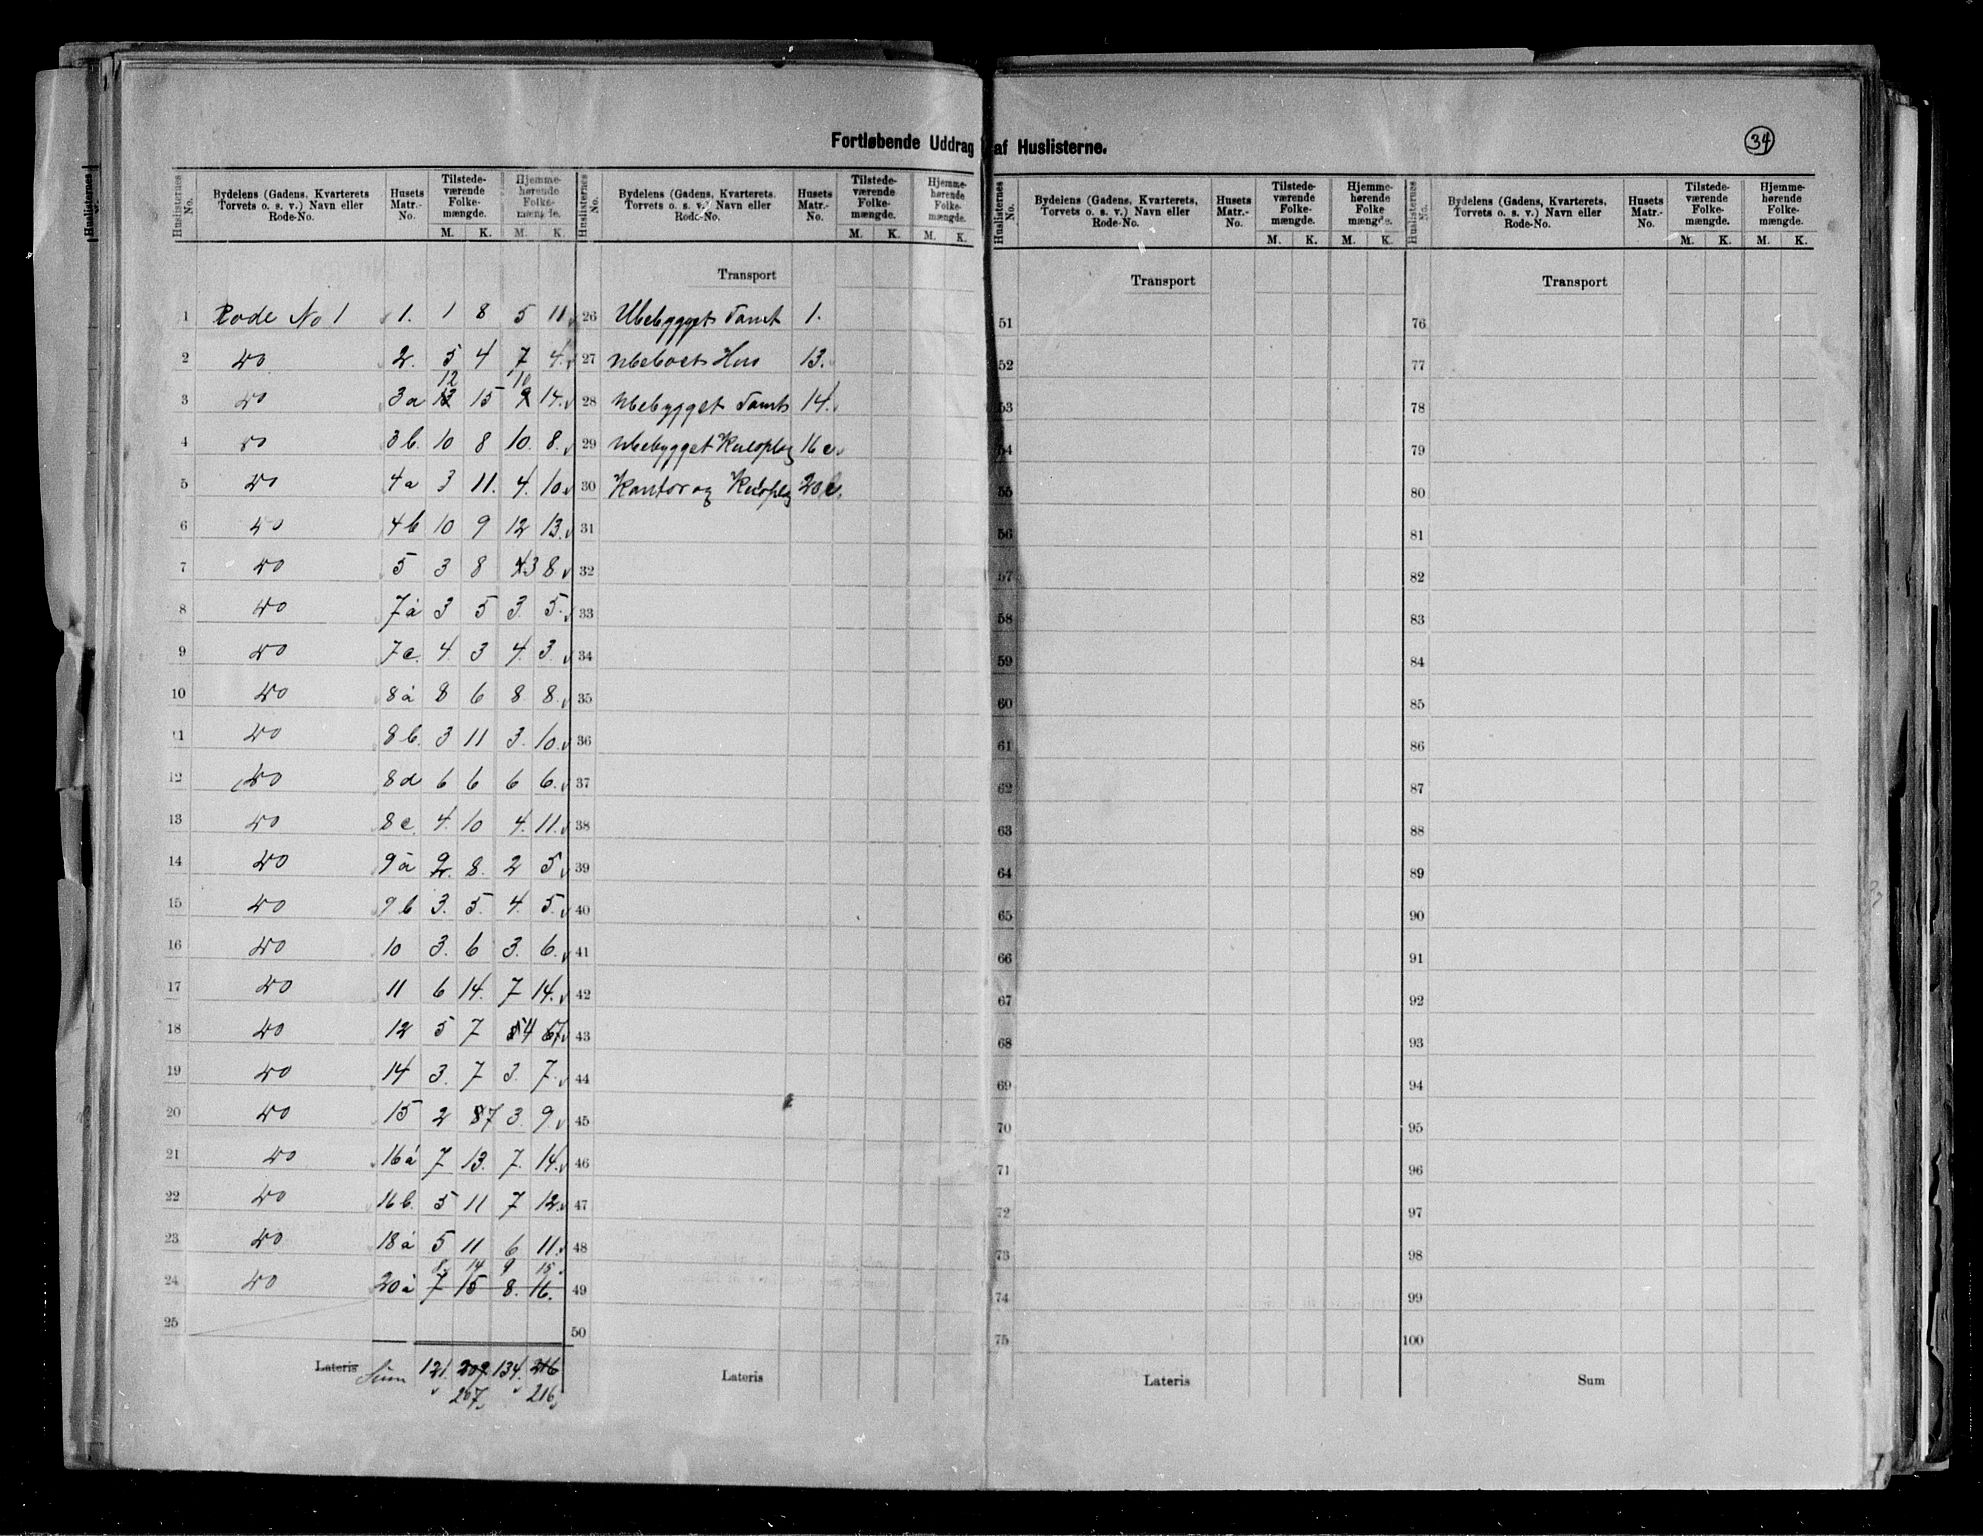 Fortløbende Uddrag af Huslisterne.
34
Huslisternes No. Bydelens (Gadens, Kvarterets Torvets o. s. v.) Navn eller Rode-No. Husets Matr.-No. Tilstedeværende Folkemængde. M. K. Hjemmehørende Folkemængde. M. K.
Transport
1 Rode No 1 1. 1 8 5 11
2 do 2. 5 4 7 4.
12 10
3 do 3a 13 15 9 14.
4 do 3b. 10 8 10. 8.
5 do 4a 3 11. 4. 10
6 do 4b 10 9 12 13.
7 do 5 3 8 4 3 8.
8 do 7a 3 5 3. 5.
9 do 7c. 4. 3 4. 3.
10 do 8a 8 6 8 8.
11 do 8b. 3 11 3. 10.
12 do 8d 6 6 6 6.
13 do 8c. 4. 10 4. 11.
14 do 9a 2. 8. 2 5
15 do 9b 3. 5. 4. 5.
16 do 10 3. 6 3. 6.
17 do 11 6 14. 7 14.
18 do 12 5 7 5 4 6 7
19 do 14 3. 7 3. 7.
20 do 15 2 8 7 3. 9.
21 do 16a 7 13. 7. 14.
22 do 16b. 5 11 7 12.
23 do 18a 5 11 6 11.
8. 14 9 15
24 do 20a 7 15 8. 16.
25
Lateris Sum 121. 209. 134. 216
207. 216.
Huslisternes No. Bydelens (Gadens, Kvarterets. Torvets o. s. v.) Navn eller Rode-No. Husets Matr.-No. Tilstedeværende Folkemængde. M. K. Hjemmehørende Folkemængde. M. K.
Transport
26 Ubebygget Tomt 1.
27 Ubeboet Hus 13.
28 Ubebygget Tomt 14.
29 Ubebygget Kuloplag 16c.
30 Kontor og Kuloplag 20b.
31
32
33
34
35
36
37
38
39
40
41
42
43
44
45
46
47
48
49
50
Lateris
Huslisternes No. Bydelens (Gadens, Kvarterets, Torvets o. s. v.) Navn eller Rode-No. Husets Matr.-No. Tilstedeværende Folkemængde. M. K. Hjemmehørende Folkemængde. M. K.
Transport
51
52
53
54
55
56
57
58
59
60
61
62
63
64
65
66
67
68
69
70
71
72
73
74
75
Lateris
Huslisternes No. Bydelens (Gadens, Kvarterets, Torvets o. s. v.) Navn eller Rode-No. Husets Matr.-No. Tilstedeværende Folkemængde. M. K. Hjemmehørende Folkemængde. M. K.
Transport
76
77
78
79
80
81
82
83
84
85
86
87
88
89
90
91
92
93
94
95
96
97
98
99
100
Sum
Huslisternes